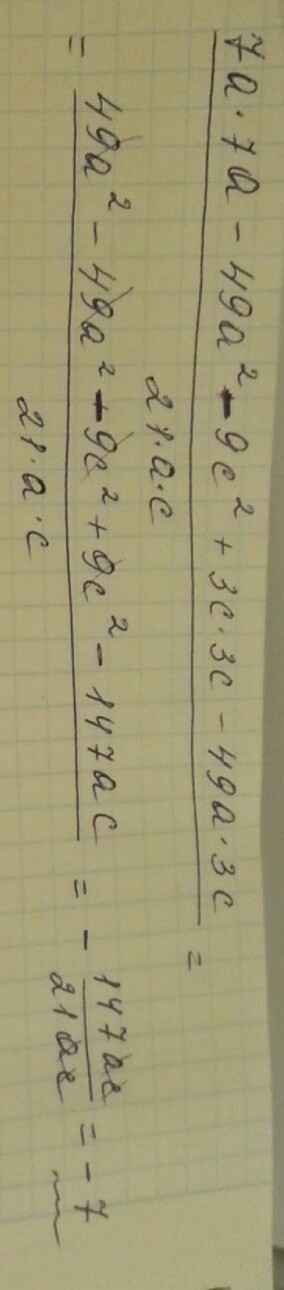 7a·7a - 49a² - 9c² + 3c·3c - 49a·3c =
21·a·c
= 49a² - 49a² - 9c² + 9c² - 147ac = - 147ac = -7
21·a·c 21ac